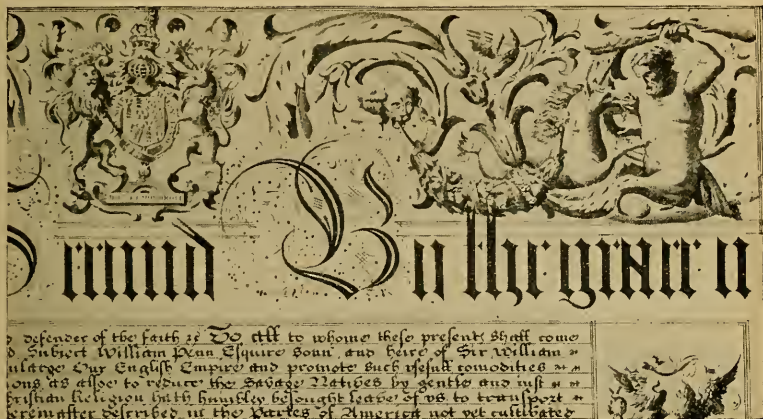 By the grace o
defender of the faith &c To All to whome these presents Shall come
Subiect William Penn Esquire Sonn and heire of Sir William
nlarge Our English Empire and promote such usefull comodities
ons as alsoe to reduce the Savage Natives by gentle and iust
hristian Religion hath humbley besought leave of us to transport
ereinafter described in the Partes of America not yet cultivated